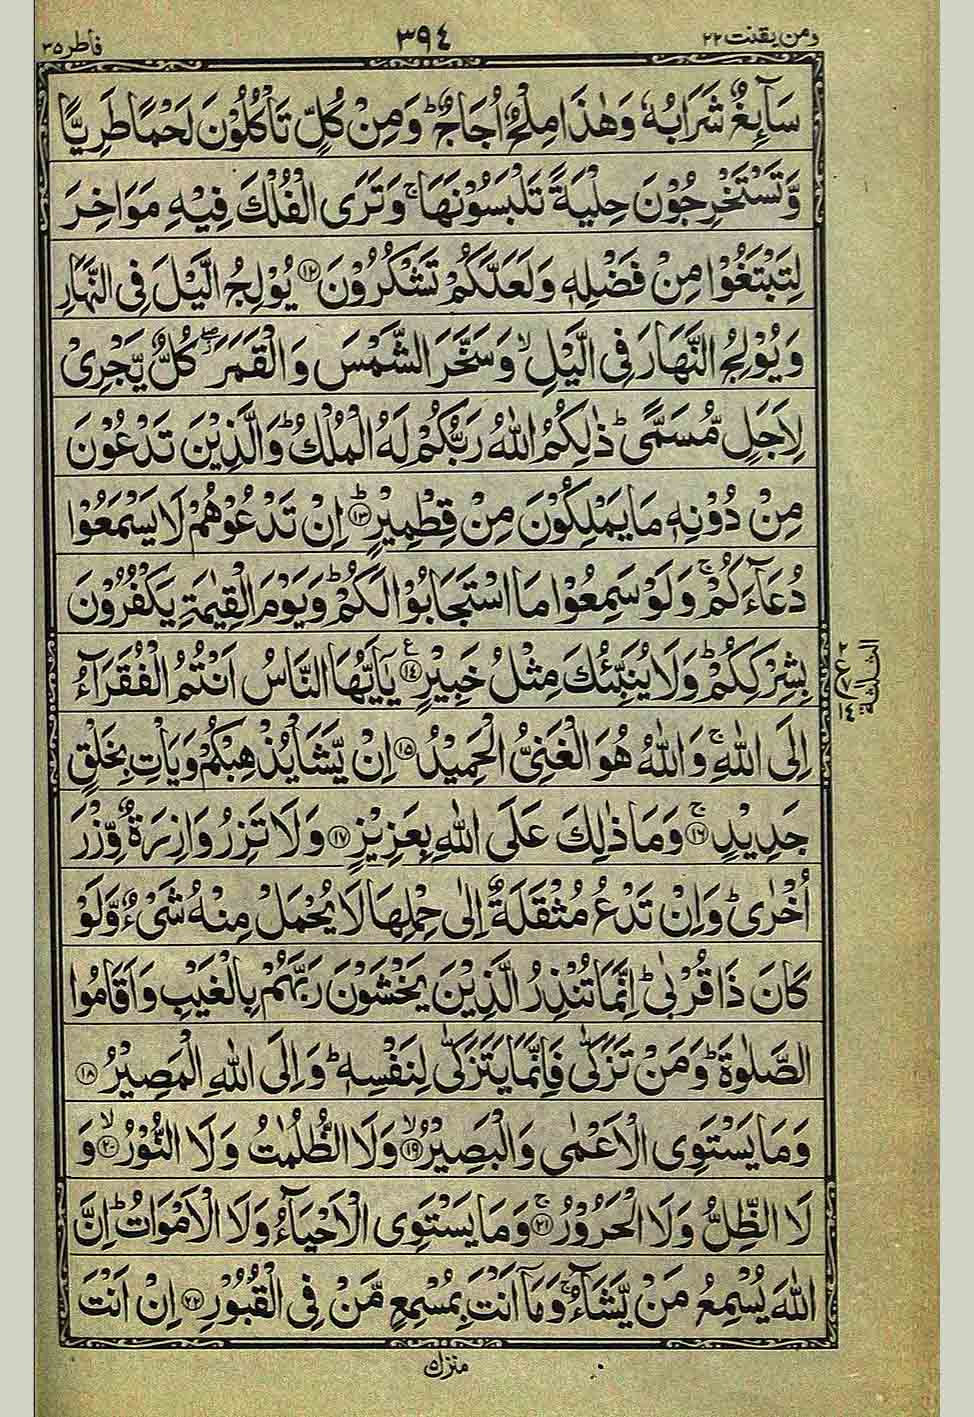 ومن یقنت ۲۲ ۳۹٤ فاطر ۳۵
سَآئِغٌ شَرَابُهٗ وَهٰذَا مِلْحٌ اُجَاجٌ ؕ وَمِنْ كُلٍّ تَاْكُلُوْنَ لَحْمًا طَرِيًّا
وَّتَسْتَخْرِجُوْنَ حِلْيَةً تَلْبَسُوْنَهَا ۚ وَتَرَى الْفُلْكَ فِيْهِ مَوَاخِرَ
لِتَبْتَغُوْا مِنْ فَضْلِهٖ وَلَعَلَّكُمْ تَشْكُرُوْنَ ﴿۱۲﴾ يُوْلِجُ الَّيْلَ فِى النَّهَارِ
وَيُوْلِجُ النَّهَارَ فِى الَّيْلِ ۙ وَسَخَّرَ الشَّمْسَ وَالْقَمَرَ ۖ كُلٌّ يَّجْرِىْ
لِاَجَلٍ مُّسَمًّى ؕ ذٰلِكُمُ اللّٰهُ رَبُّكُمْ لَهُ الْمُلْكُ ؕ وَالَّذِيْنَ تَدْعُوْنَ
مِنْ دُوْنِهٖ مَا يَمْلِكُوْنَ مِنْ قِطْمِيْرٍ ؕ ﴿۱۳﴾ اِنْ تَدْعُوْهُمْ لَا يَسْمَعُوْا
دُعَآءَكُمْ ۚ وَلَوْ سَمِعُوْا مَا اسْتَجَابُوْا لَكُمْ ؕ وَيَوْمَ الْقِيٰمَةِ يَكْفُرُوْنَ
بِشِرْكِكُمْ ؕ وَلَا يُنَبِّئُكَ مِثْلُ خَبِيْرٍ ﴿۱٤﴾ ع يٰۤاَيُّهَا النَّاسُ اَنْتُمُ الْفُقَرَآءُ
اِلَى اللّٰهِ ۚ وَاللّٰهُ هُوَ الْغَنِىُّ الْحَمِيْدُ ﴿۱۵﴾ اِنْ يَّشَاْ يُذْهِبْكُمْ وَيَاْتِ بِخَلْقٍ
جَدِيْدٍ ۚ ﴿۱۶﴾ وَمَا ذٰلِكَ عَلَى اللّٰهِ بِعَزِيْزٍ ﴿۱۷﴾ وَلَا تَزِرُ وَازِرَةٌ وِّزْرَ
اُخْرٰى ؕ وَاِنْ تَدْعُ مُثْقَلَةٌ اِلٰى حِمْلِهَا لَا يُحْمَلْ مِنْهُ شَىْءٌ وَّلَوْ
كَانَ ذَا قُرْبٰى ؕ اِنَّمَا تُنْذِرُ الَّذِيْنَ يَخْشَوْنَ رَبَّهُمْ بِالْغَيْبِ وَاَقَامُوا
الصَّلٰوةَ ؕ وَمَنْ تَزَكّٰى فَاِنَّمَا يَتَزَكّٰى لِنَفْسِهٖ ؕ وَاِلَى اللّٰهِ الْمَصِيْرُ ﴿۱۸﴾
وَمَا يَسْتَوِى الْاَعْمٰى وَالْبَصِيْرُ ۙ ﴿۱۹﴾ وَلَا الظُّلُمٰتُ وَلَا النُّوْرُ ۙ ﴿۲۰﴾ وَ
لَا الظِّلُّ وَلَا الْحَرُوْرُ ۚ ﴿۲۱﴾ وَمَا يَسْتَوِى الْاَحْيَآءُ وَلَا الْاَمْوَاتُ ؕ اِنَّ
اللّٰهَ يُسْمِعُ مَنْ يَّشَآءُ ۚ وَمَاۤ اَنْتَ بِمُسْمِعٍ مَّنْ فِى الْقُبُوْرِ ﴿۲۲﴾ اِنْ اَنْتَ
الثلثة
منزل ۵